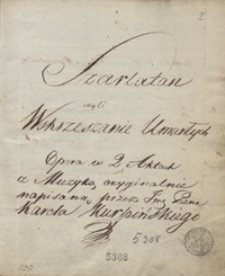 Szarlatan
czyli
Wskrzeszanie Umarłych
Opera w 2. Aktach
z Muzyką oryginalnie
napisaną przez Jmć Pana
Karola Kurpińskiego
5308
5308